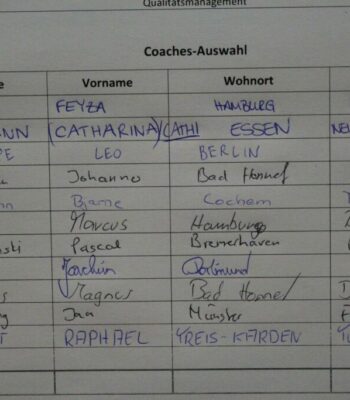 Qualitätsmanagement
Coaches-Auswahl
Vorname Wohnort
FEYZA HAMBURG
(CATHARINA)/CATHI ESSEN
LEO BERLIN
Johanna Bad Honnef
Bjarne Cochem
Marcus Hamburg
Pascal Bremerhaven
Joachim Dortmund
Magnus Bad Honnef
Jan Münster
RAPHAEL TREIS-KARDEN